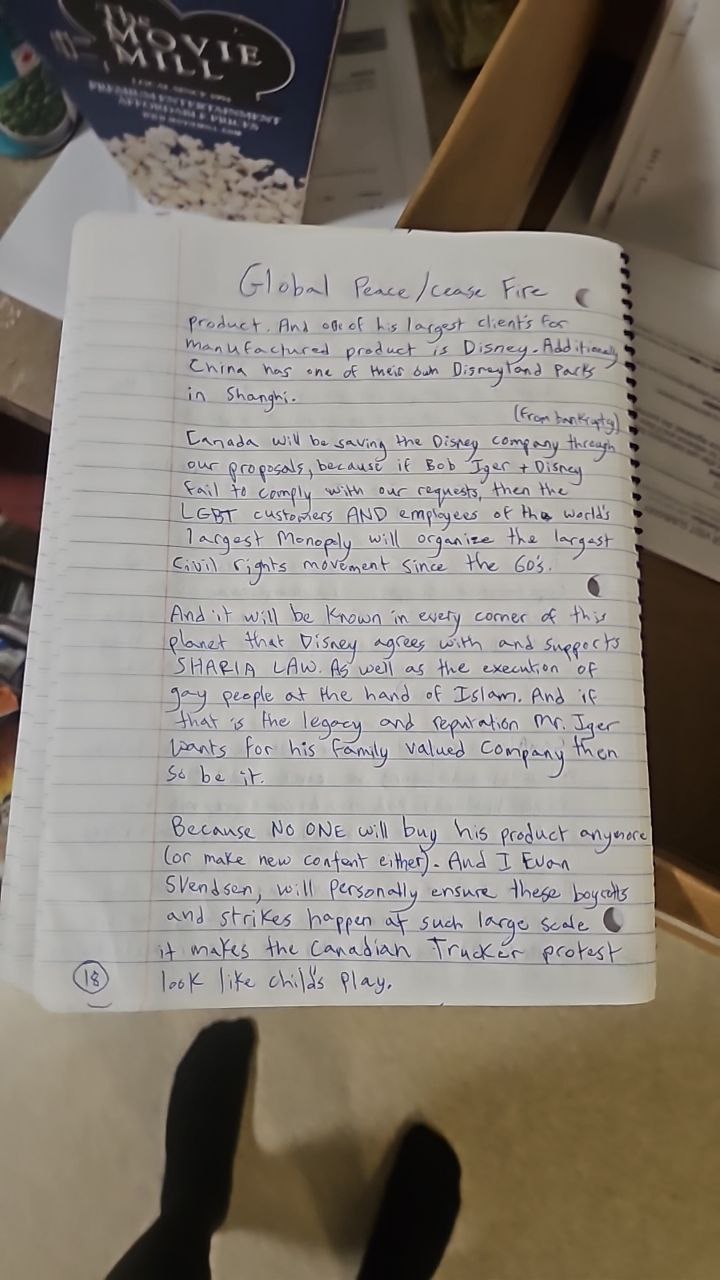 The
MOVIE
MILL
PREMIUM ENTERTAINMENT
AFFORDABLE PRICES
Global Peace/cease Fire
product. And one of his largest client's for
manufactured product is Disney. Additionally
China has one of their own Disneyland Parks
in Shanghi.
(from bankruptcy)
Canada will be saving the Disney company through
our proposals, because if Bob Iger + Disney
fail to comply with our requests, then the
LGBT customers AND employees of the world's
largest Monopoly will organize the largest
Civil rights movement since the 60's.
And it will be known in every corner of this
planet that Disney agrees with and supports
SHARIA LAW. As well as the execution of
gay people at the hand of Islam. And if
that is the legacy and reputation Mr. Iger
wants for his family valued company then
so be it.
Because NO ONE will buy his product anymore
(or make new content either). And I Evan
Svendsen, will personally ensure these boycotts
and strikes happen at such large scale
it makes the Canadian Trucker protest
look like child's play.
18